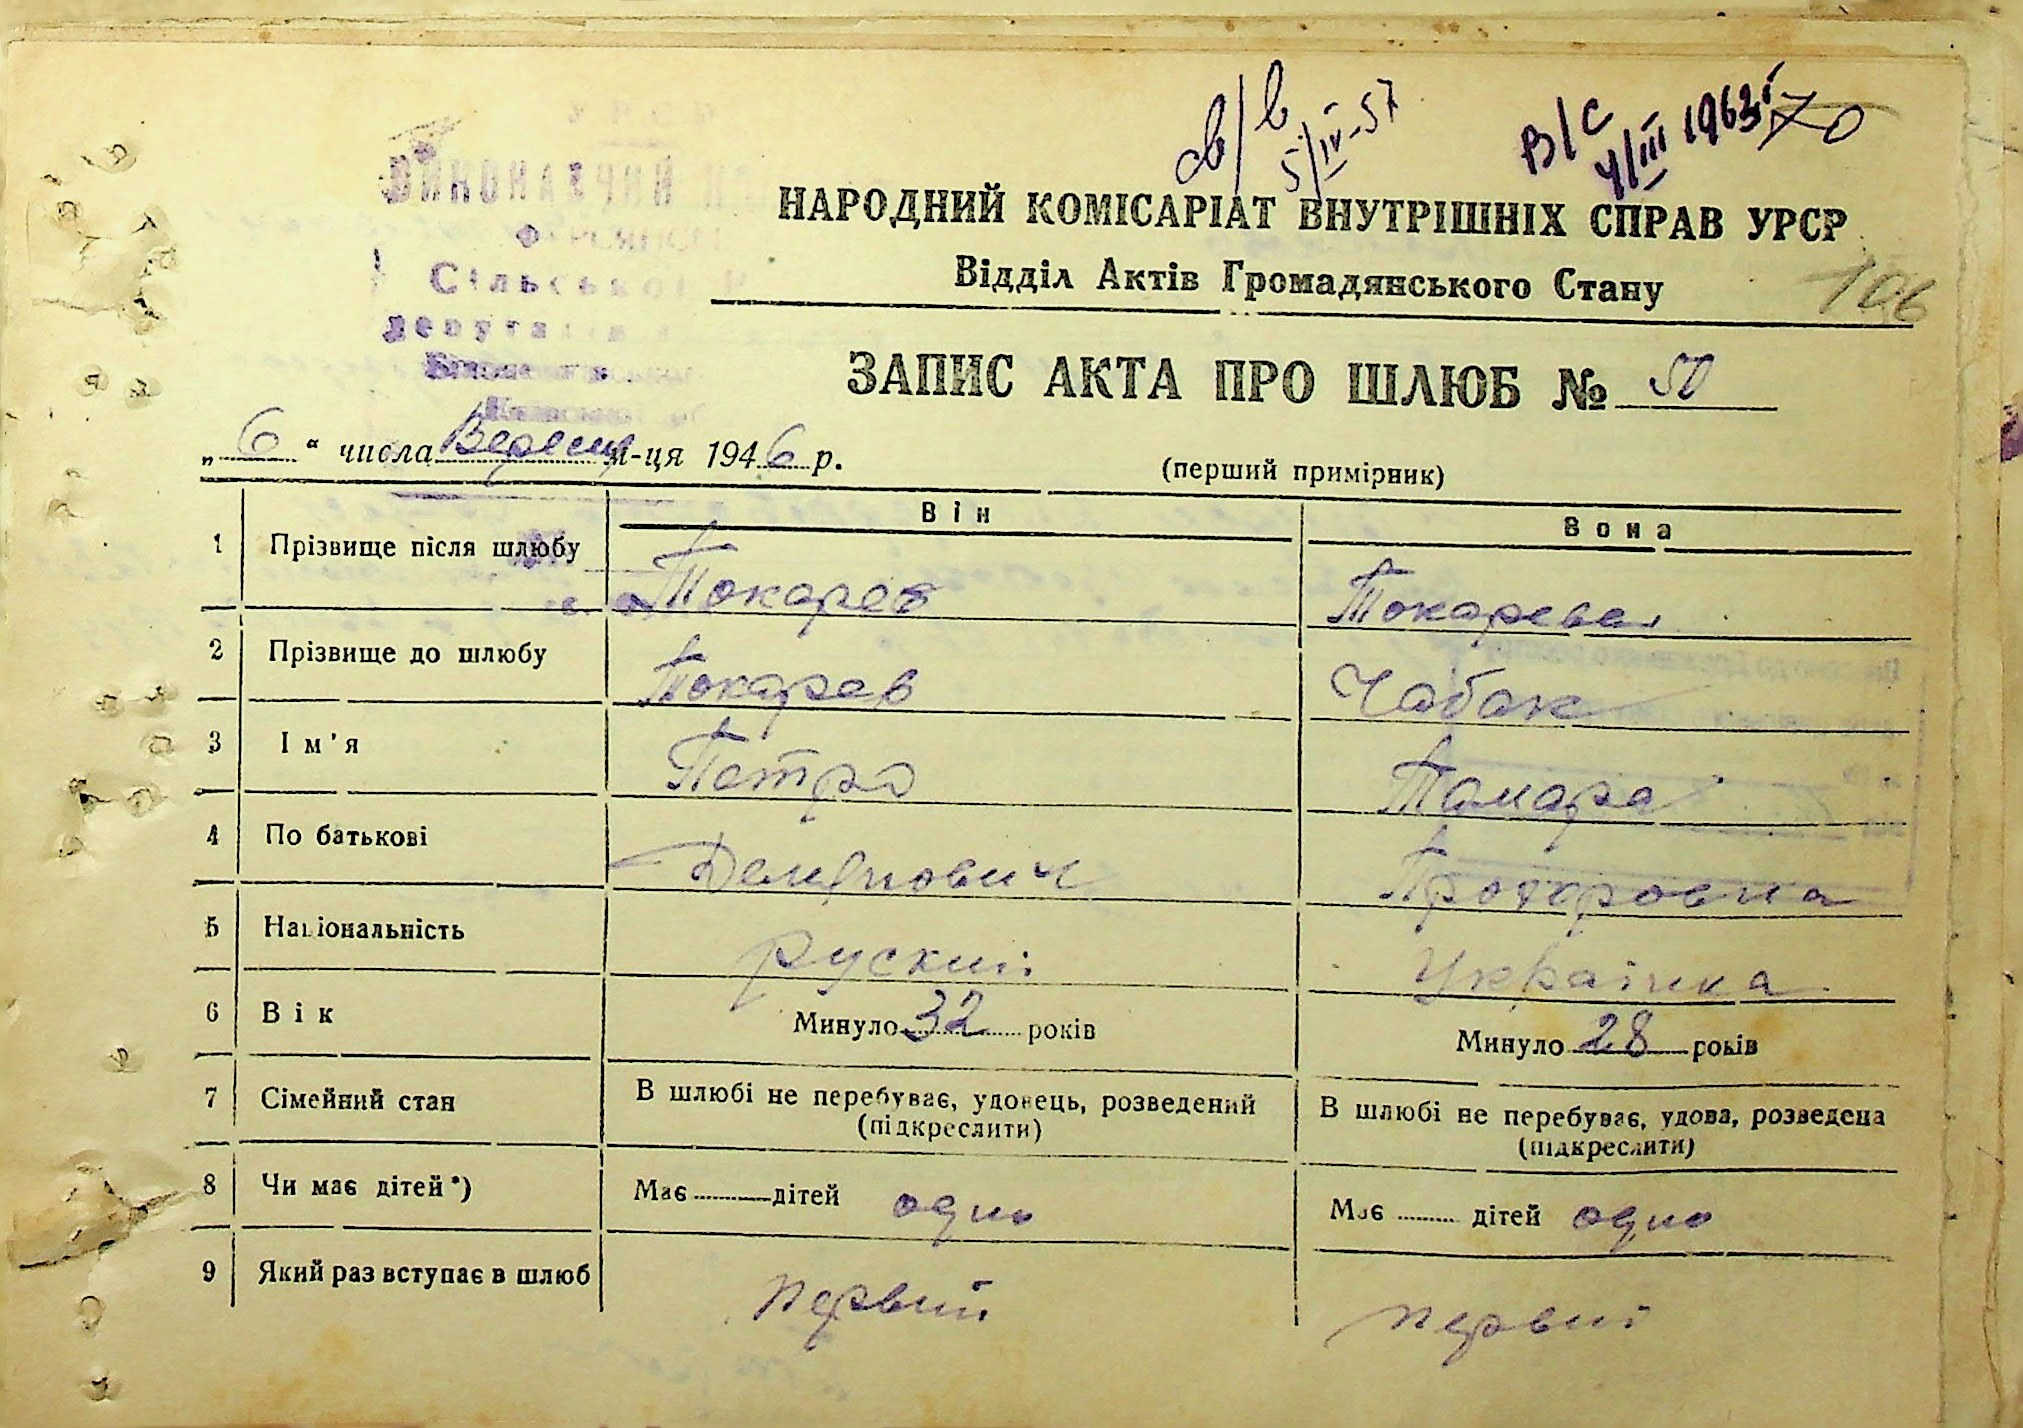 в/в
5/IV-57
В/С
4/III 1963 г
70
НАРОДНИЙ КОМІСАРІАТ ВНУТРІШНІХ СПРАВ УРСР
Відділ Актів Громадянського Стану
106
ЗАПИС АКТА ПРО ШЛЮБ № 50
Сільської
депутатів
„ 6 “ числа Вересня м-ця 194 6 р.
(перший примірник)
Він
Вона
1 Прізвище після шлюбу Токарев Токарева
2 Прізвище до шлюбу Токарев Чабак
3 Ім'я Петро Тамара
4 По батькові Демянович
5 Національність руский Українка
6 Вік Минуло 32 років Минуло 28 років
7 Сімейний стан В шлюбі не перебуває, удовець, розведений В шлюбі не перебуває, удова, розведена
(підкреслити) (підкреслити)
8 Чи має дітей*) Має дітей одно Має дітей одно
9 Який раз вступає в шлюб первий первий